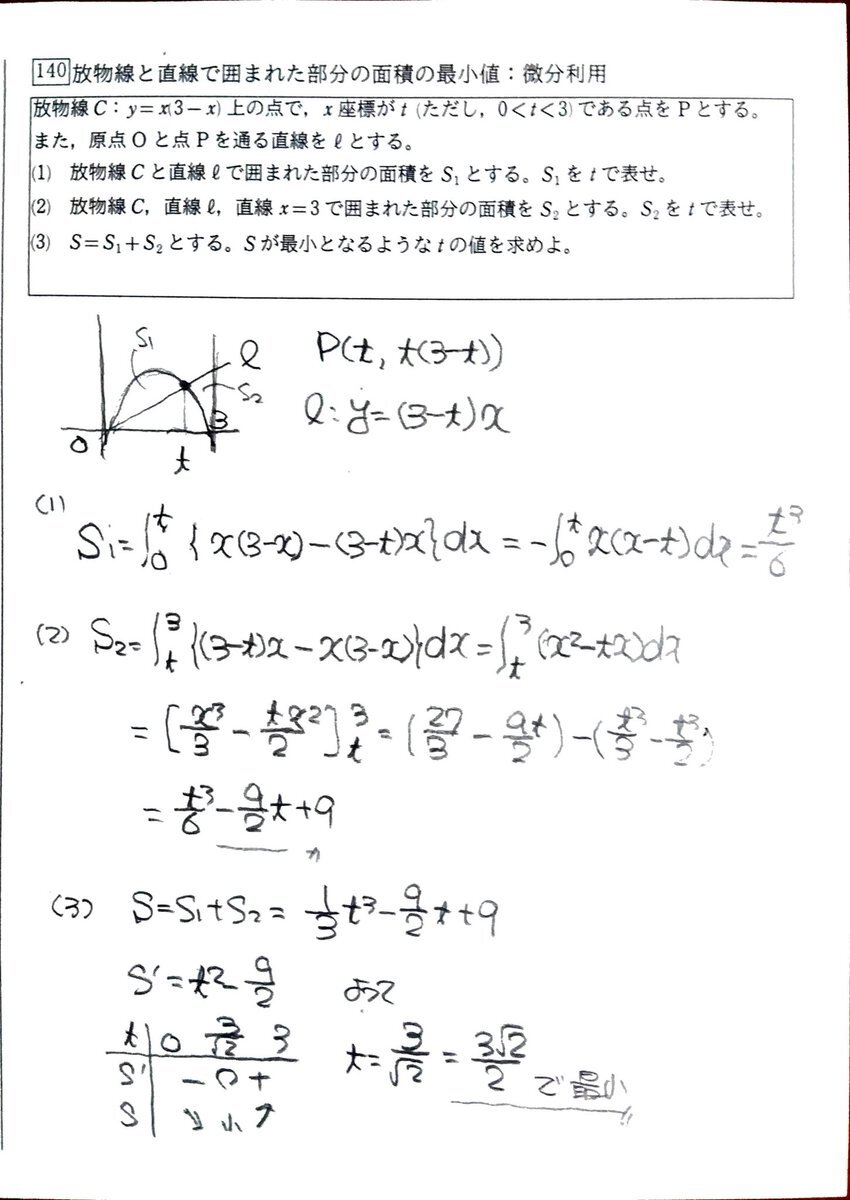 140 放物線と直線で囲まれた部分の面積の最小値：微分利用
放物線 C：y=x(3−x) 上の点で，x 座標が t (ただし，0<t<3) である点を P とする。
また，原点 O と点 P を通る直線を ℓ とする。
(1) 放物線 C と直線 ℓ で囲まれた部分の面積を S₁ とする。S₁ を t で表せ。
(2) 放物線 C，直線 ℓ，直線 x=3 で囲まれた部分の面積を S₂ とする。S₂ を t で表せ。
(3) S=S₁+S₂ とする。S が最小となるような t の値を求めよ。
S₁ ℓ S₂
0 t 3
P(t, t(3−t))
ℓ: y=(3−t)x
(1)
S₁=∫₀ᵗ{x(3−x)−(3−t)x}dx = −∫₀ᵗx(x−t)dx = t³/6
(2) S₂=∫ₜ³{(3−t)x−x(3−x)}dx = ∫ₜ³(x²−tx)dx
= [x³/3 − tx²/2]ₜ³ = (27/3 − 9t/2) − (t³/3 − t³/2)
= t³/6 − 9/2t + 9
(3) S=S₁+S₂= 1/3t³ − 9/2t + 9
S'=t²− 9/2 よって
t 0 3/√2 3
t= 3/√2 = 3√2/2 で最小
S' − 0 +
S ↘ 小 ↗